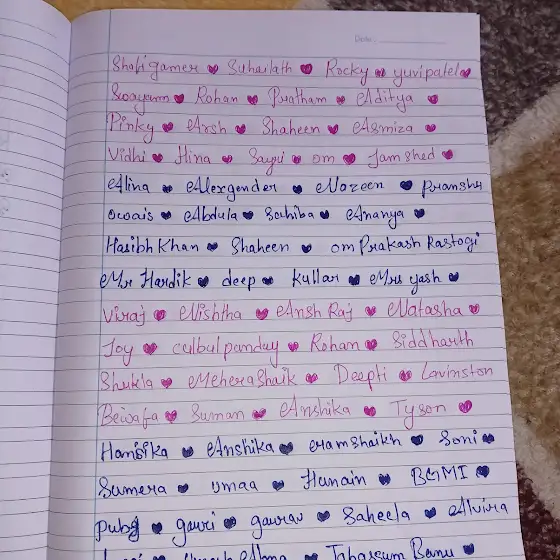 Date :
Shafi gamer ♥ Suhailath ♥ Rocky ♥ yuvi patel ♥
Swayam ♥ Rohan ♥ Pratham ♥ Aditya ♥
Pinky ♥ Arsh ♥ Shaheen ♥ Asmiza ♥
Vidhi ♥ Hina ♥ Sayri ♥ om ♥ Jamshed ♥
Alina ♥ Alexgender ♥ Nozeen ♥ Pranshu
Owais ♥ Abdula ♥ Sahiba ♥ Ananya ♥
Hasibh Khan ♥ Shaheen ♥ om Prakash Rastogi
Mr Hardik ♥ deep ♥ Kullar ♥ Mrs yash ♥
Viraj ♥ Nishtha ♥ Ansh Raj ♥ Natasha ♥
Joy ♥ culbul panday ♥ Roham ♥ Siddharth
Shukla ♥ Mehera Shaik ♥ Deepti ♥ Lavinston
Bewafa ♥ Suman ♥ Anshika ♥ Tyson ♥
Hansika ♥ Anshika ♥ eram shaikh ♥ Soni ♥
Sumera ♥ umaa ♥ Hunain ♥ BGMI ♥
pubg ♥ gauri ♥ gaurav ♥ Saheela ♥ Alvira
♥ Tabassum Banu ♥